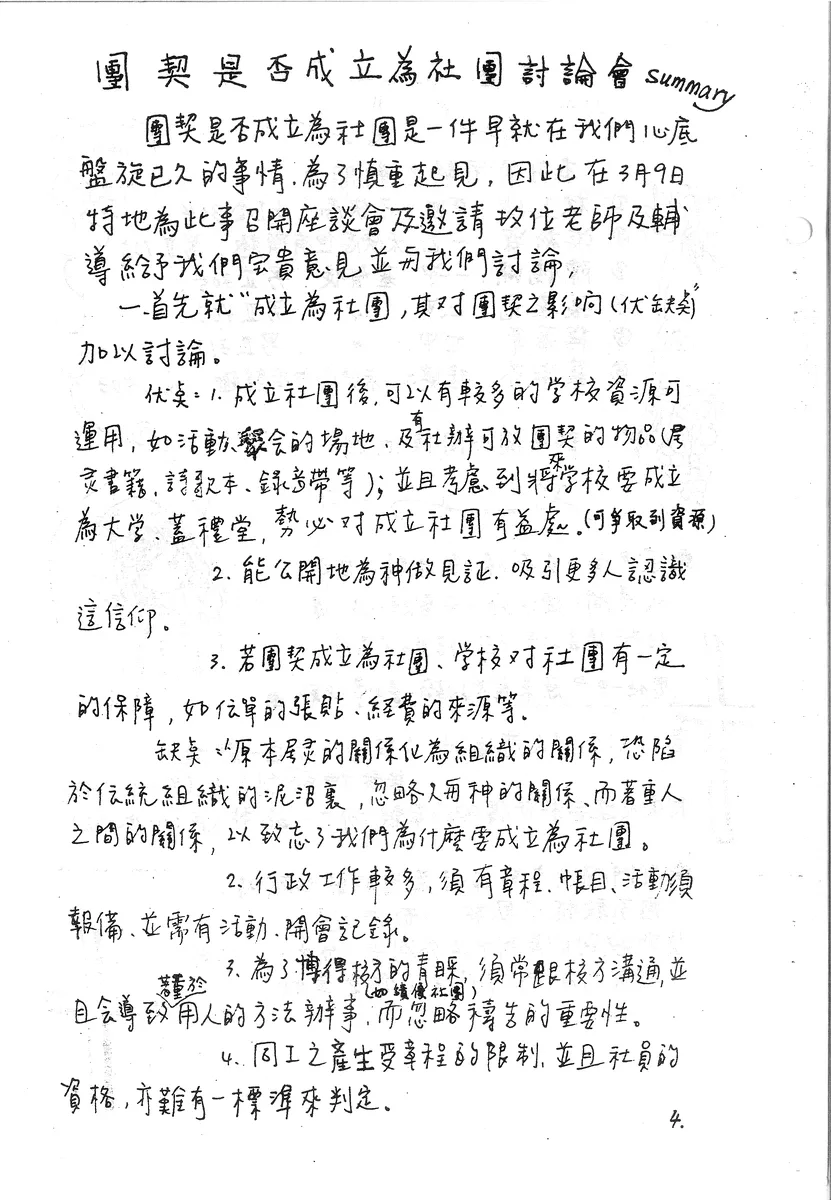 團契是否成立為社團討論會 summary
團契是否成立為社團是一件早就在我們心底
盤旋已久的事情.為了慎重起見,因此在3月9日
特地為此事召開座談會及邀請 位老師及輔
導給予我們宝貴意見並与我們討論,
一.首先就"成立為社團,其对團契之影响(优缺点)"
加以討論。
优点:1.成立社團後,可以有較多的学校資源可
運用,如活動、聚会的場地、及有社辦可放團契的物品(屬
灵書籍,詩歌本、錄音帶等);並且考慮到將來学校要成立
為大学、蓋禮堂,勢必对成立社團有益處.(可爭取到資源)
2.能公開地為神做見証.吸引更多人認識
這信仰。
3.若團契成立為社團、学校对社團有一定
的保障,如伝單的張貼、経費的來源等。
缺点:1.原本屬灵的關係化為組織的關係,恐陷
於伝統組織的泥沼裏,忽略人与神的關係、而著重人
之間的關係,以致忘了我們為什麼要成立為社團。
2.行政工作較多,須有章程、帳目、活動須
報備、並需有活動、開會記錄。
3.為了博得校方的青睬,須常跟校方溝通,並
且会導致著重於用人的方法辦事(如績優社團),而忽略禱告的重要性。
4.同工之產生受章程的限制,並且社員的
資格,亦難有一標準來判定。
4.